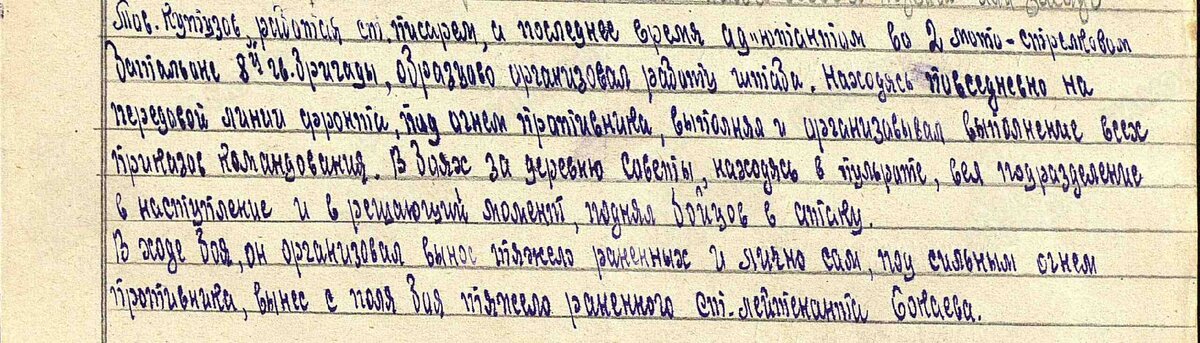 Тов. Кутузов, работая ст. писарем, а последнее время ад"ютантом во 2 мото-стрелковом
батальоне 8й гв. бригады, образцово организовал работу штаба. Находясь повседневно на
передовой линии фронта, под огнем противника, выполнял и организовывал выполнение всех
приказов командования. В боях за деревню Советы, находясь в , вел подразделение
в наступление и в решающий момент, поднял бойцов в атаку.
В ходе боя, он организовал вынос тяжело раненных и лично сам, под сильным огнем
противника, вынес с поля боя тяжело раненного ст-лейтенанта Сокаева.